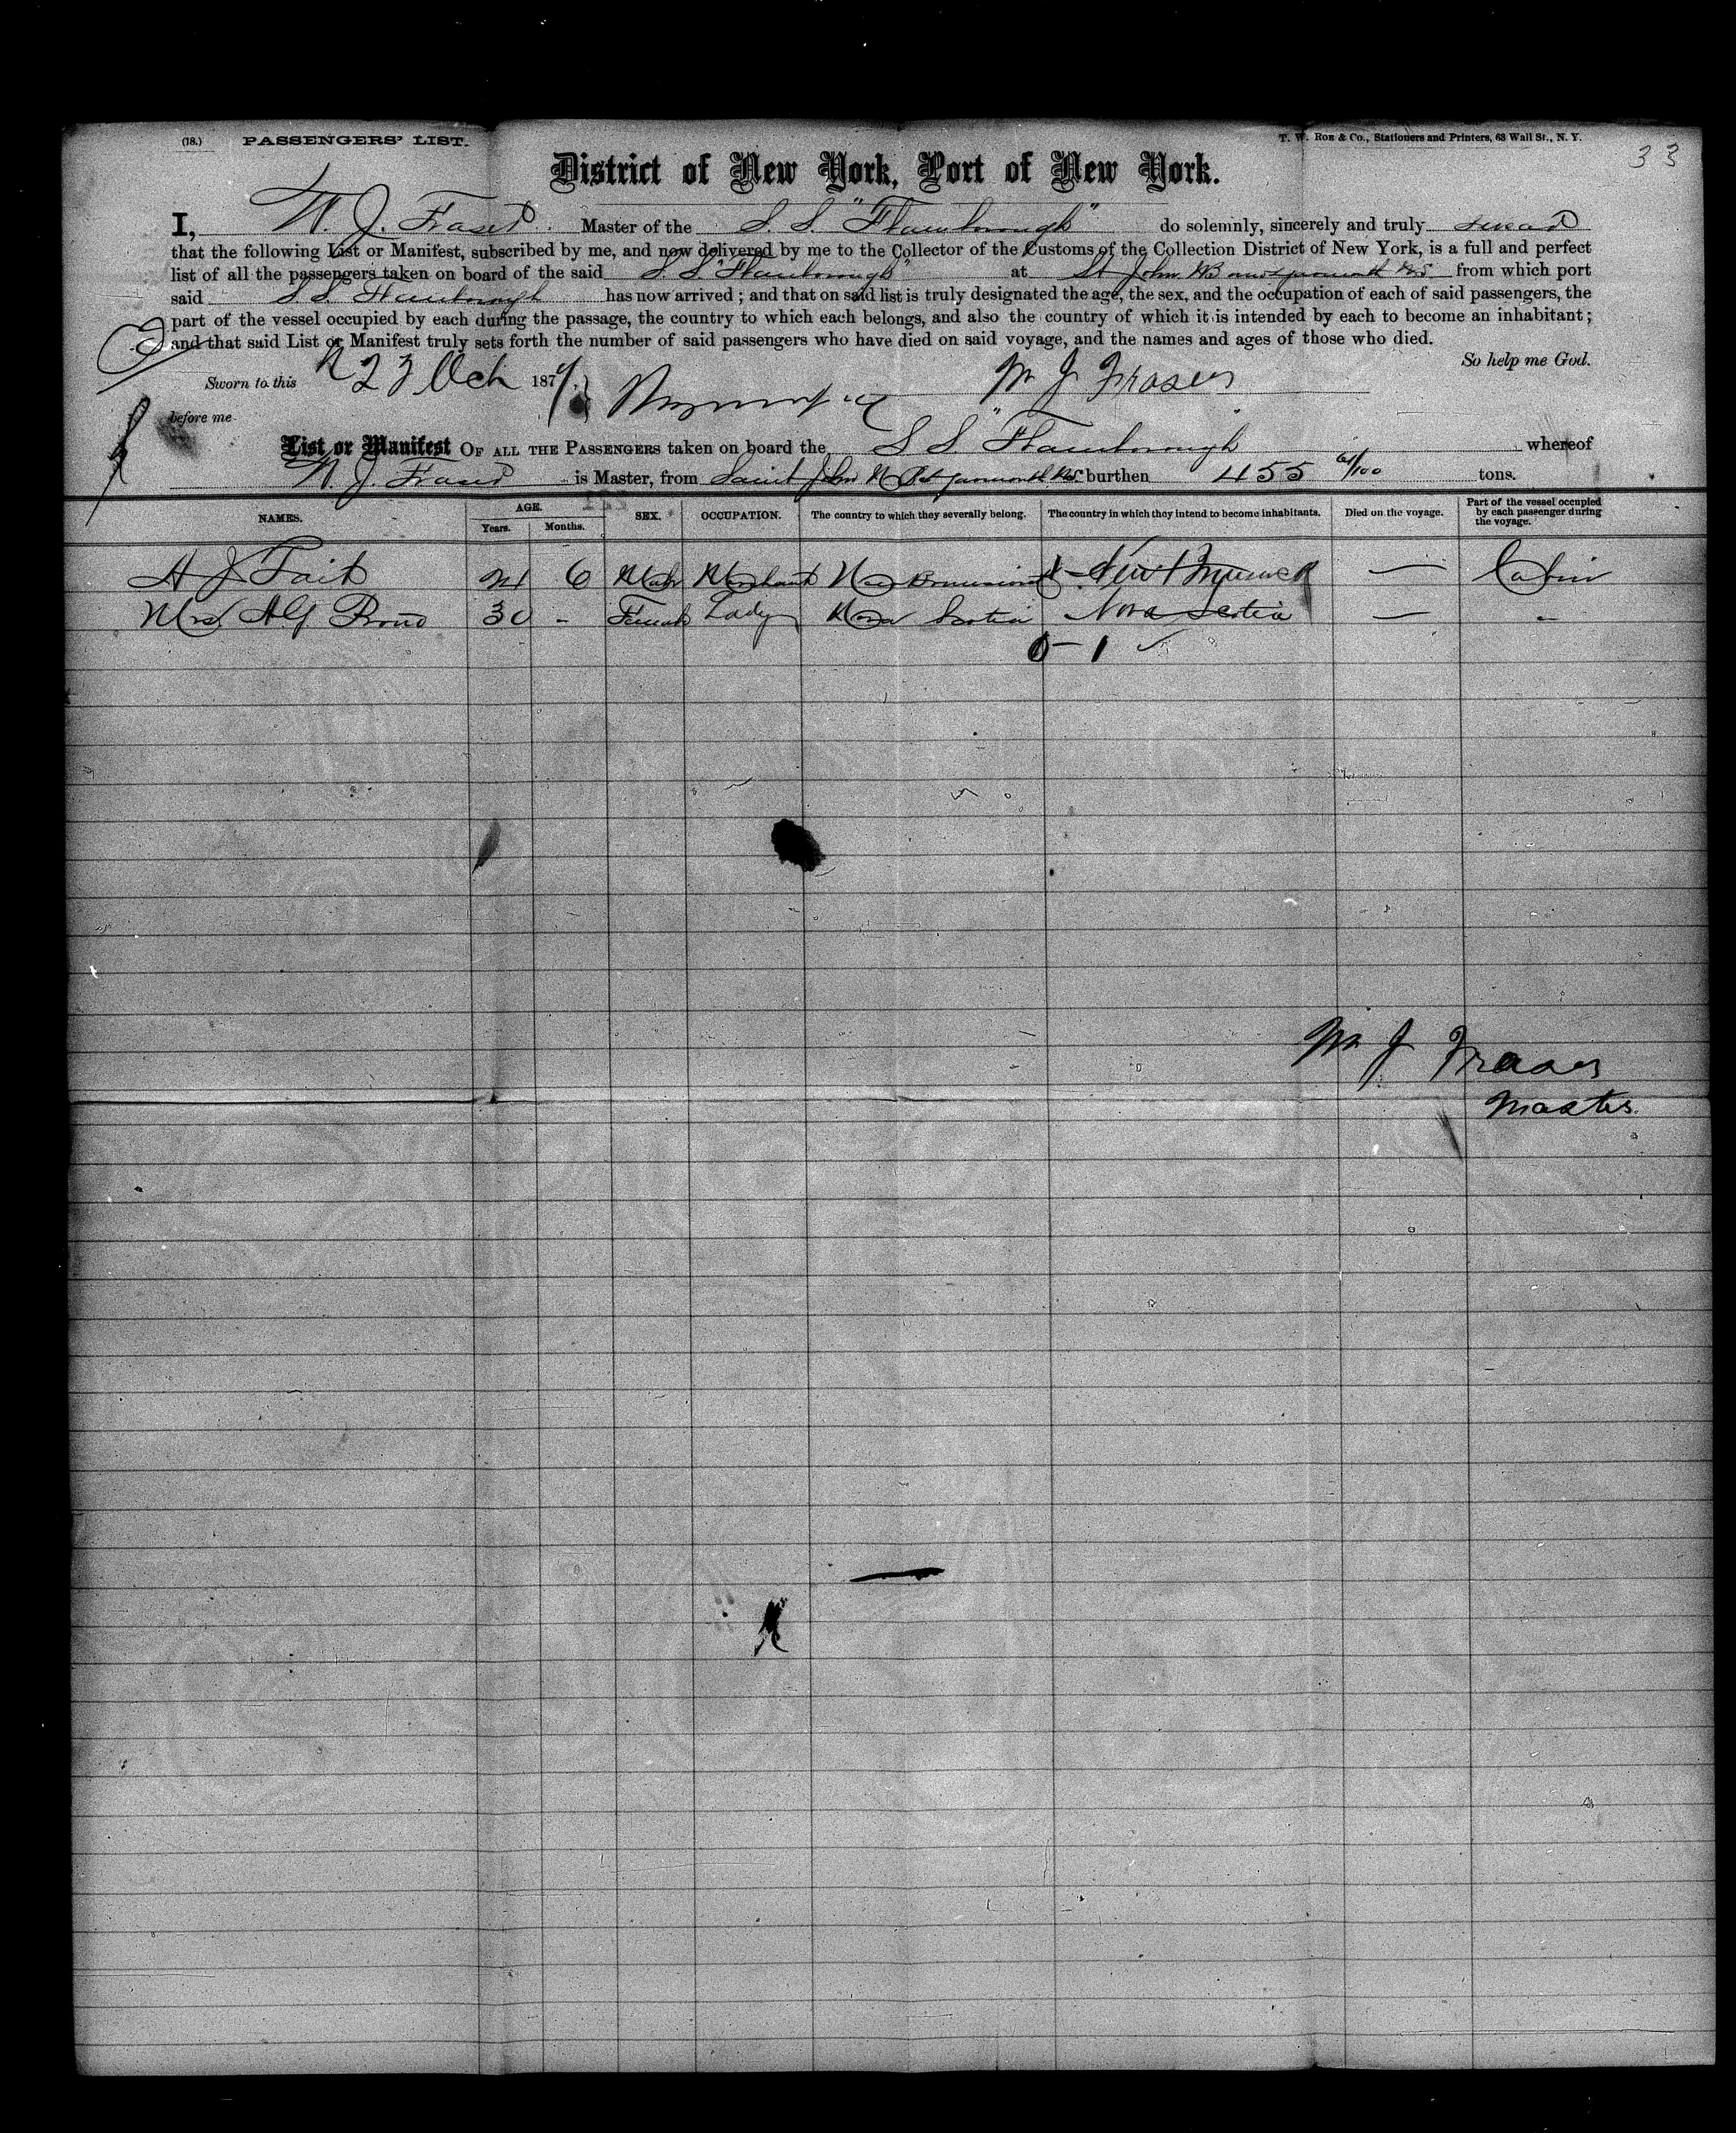 (18.) PASSENGERS' LIST. T. W. Roe & Co., Stationers and Printers, 63 Wall St., N. Y.
33
District of New York, Port of New York.
I, W. J. Fraser Master of the S. S. "Flamborough" do solemnly, sincerely and truly swear
that the following List or Manifest, subscribed by me, and now delivered by me to the Collector of the Customs of the Collection District of New York, is a full and perfect
list of all the passengers taken on board of the said S. S. "Flamborough" at St John NB and Yarmouth NS from which port
said S. S. Flamborough has now arrived; and that on said list is truly designated the age, the sex, and the occupation of each of said passengers, the
part of the vessel occupied by each during the passage, the country to which each belongs, and also the country of which it is intended by each to become an inhabitant;
and that said List or Manifest truly sets forth the number of said passengers who have died on said voyage, and the names and ages of those who died.
So help me God.
Sworn to this 23 Oct 187 W J Fraser
before me
List or Manifest OF ALL THE PASSENGERS taken on board the S. S. "Flamborough whereof
W. J. Fraser is Master, from Saint John N B Yarmouth NS burthen 455 61/100 tons.
NAMES. AGE. SEX. OCCUPATION. The country to which they severally belong. The country in which they intend to become inhabitants. Died on the voyage. Part of the vessel occupied by each passenger during the voyage.
Years. Months.
A J Tait 6 Male Merchant New Brunswick New Brunswick — Cabin
Mrs 30 - Female Lady Nova Scotia Nova Scotia — -
0-1 ✓
W J Fraser
Master